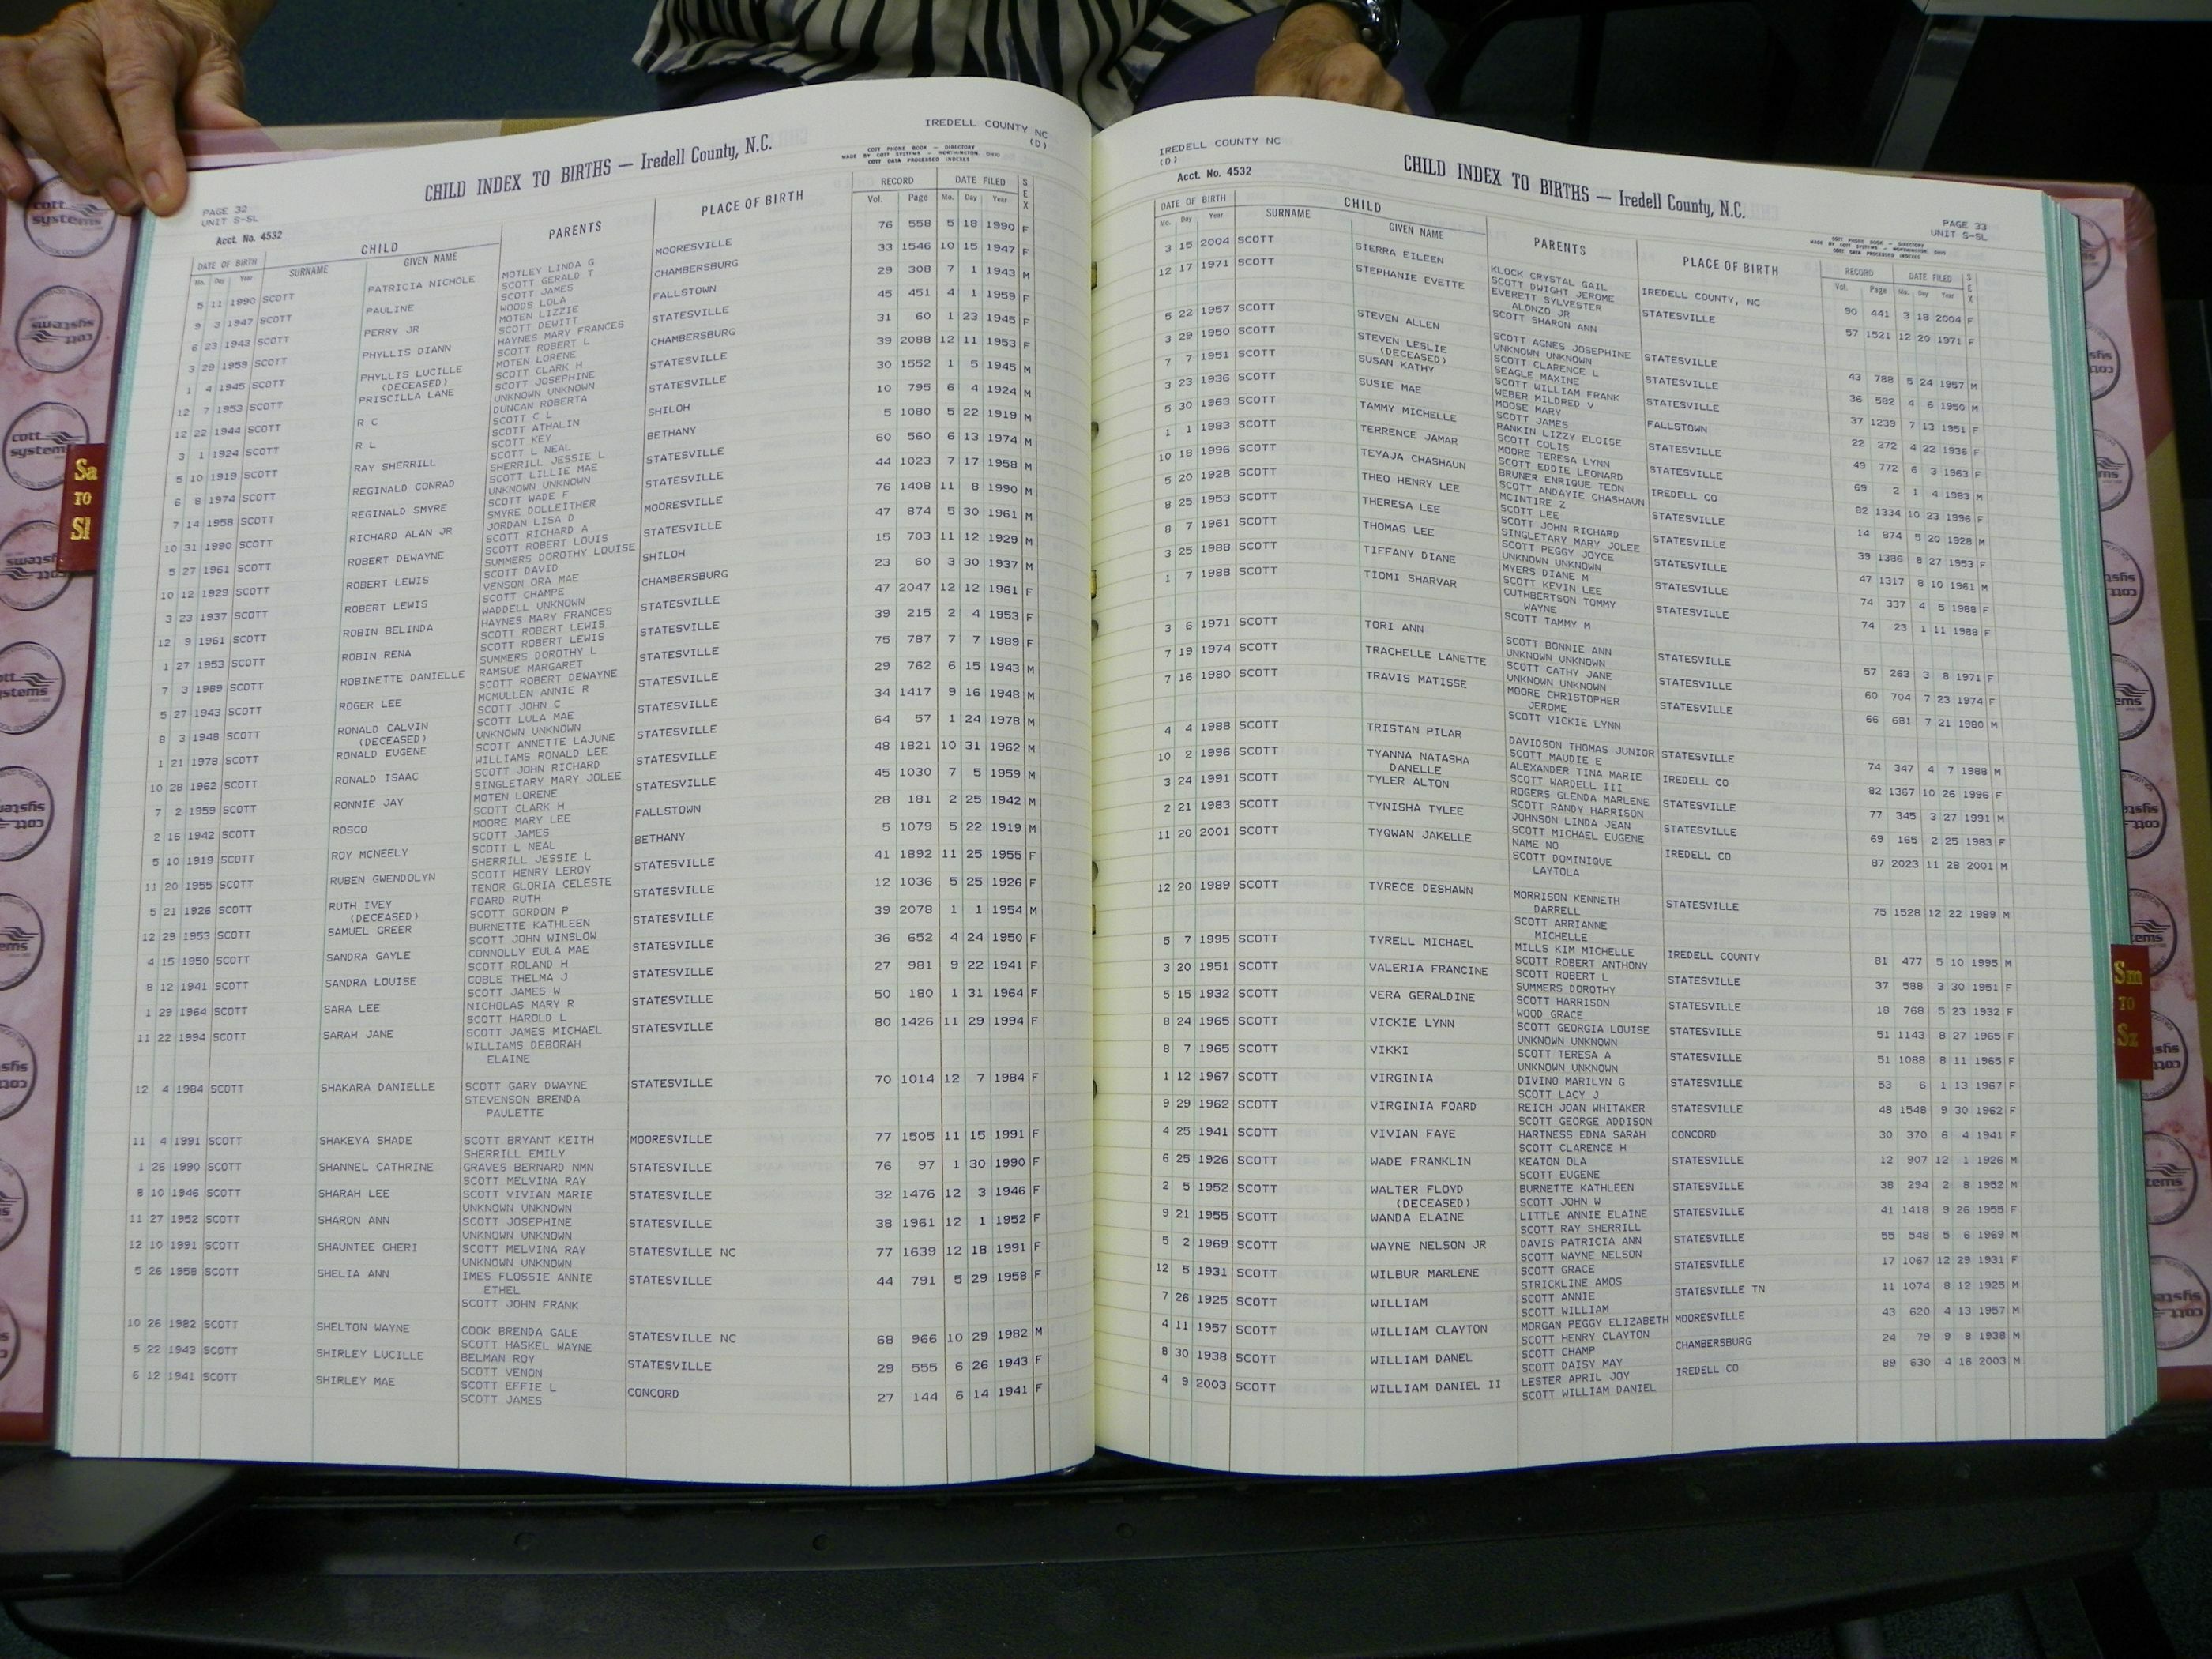 IREDELL COUNTY NC
(D)
CHILD INDEX TO BIRTHS — Iredell County, N.C.
COTT PHONE BOOK - DIRECTORY
MADE BY COTT SYSTEMS - WORTHINGTON, OHIO
COTT DATA PROCESSED INDEXES
PAGE 32
UNIT S-SL
Acct. No. 4532
DATE OF BIRTH CHILD PARENTS PLACE OF BIRTH RECORD DATE FILED SEX
Mo. Day Year SURNAME GIVEN NAME Vol. Page Mo. Day Year
5 11 1990 SCOTT PATRICIA NICHOLE MOTLEY LINDA G MOORESVILLE 76 558 5 18 1990 F
SCOTT GERALD T
9 3 1947 SCOTT PAULINE SCOTT JAMES CHAMBERSBURG 33 1546 10 15 1947 F
WOODS LOLA
6 23 1943 SCOTT PERRY JR MOTEN LIZZIE FALLSTOWN 29 308 7 1 1943 M
SCOTT DEWITT
3 29 1959 SCOTT PHYLLIS DIANN HAYNES MARY FRANCES STATESVILLE 45 451 4 1 1959 F
SCOTT ROBERT L
1 4 1945 SCOTT PHYLLIS LUCILLE MOTEN LORENE CHAMBERSBURG 31 60 1 23 1945 F
(DECEASED) SCOTT CLARK H
12 7 1953 SCOTT PRISCILLA LANE SCOTT JOSEPHINE STATESVILLE 39 2088 12 11 1953 F
UNKNOWN UNKNOWN
12 22 1944 SCOTT R C DUNCAN ROBERTA STATESVILLE 30 1552 1 5 1945 M
SCOTT C L
3 1 1924 SCOTT R L SCOTT ATHALIN SHILOH 10 795 6 4 1924 M
SCOTT KEY
5 10 1919 SCOTT RAY SHERRILL SCOTT L NEAL BETHANY 5 1080 5 22 1919 M
SHERRILL JESSIE L
6 8 1974 SCOTT REGINALD CONRAD SCOTT LILLIE MAE STATESVILLE 60 560 6 13 1974 M
UNKNOWN UNKNOWN
7 14 1958 SCOTT REGINALD SMYRE SCOTT WADE F STATESVILLE 44 1023 7 17 1958 M
SMYRE DOLLEITHER
10 31 1990 SCOTT RICHARD ALAN JR JORDAN LISA D MOORESVILLE 76 1408 11 8 1990 M
SCOTT RICHARD A
5 27 1961 SCOTT ROBERT DEWAYNE SCOTT ROBERT LOUIS STATESVILLE 47 874 5 30 1961 M
SUMMERS DOROTHY LOUISE
10 12 1929 SCOTT ROBERT LEWIS SCOTT DAVID SHILOH 15 703 11 12 1929 M
VENSON ORA MAE
3 23 1937 SCOTT ROBERT LEWIS SCOTT CHAMPE CHAMBERSBURG 23 60 3 30 1937 M
WADDELL UNKNOWN
12 9 1961 SCOTT ROBIN BELINDA HAYNES MARY FRANCES STATESVILLE 47 2047 12 12 1961 F
SCOTT ROBERT LEWIS
1 27 1953 SCOTT ROBIN RENA SCOTT ROBERT LEWIS STATESVILLE 39 215 2 4 1953 F
SUMMERS DOROTHY L
7 3 1989 SCOTT ROBINETTE DANIELLE RAMSUE MARGARET STATESVILLE 75 787 7 7 1989 F
SCOTT ROBERT DEWAYNE
5 27 1943 SCOTT ROGER LEE MCMULLEN ANNIE R STATESVILLE 29 762 6 15 1943 M
SCOTT JOHN C
8 3 1948 SCOTT RONALD CALVIN SCOTT LULA MAE STATESVILLE 34 1417 9 16 1948 M
(DECEASED) UNKNOWN UNKNOWN
1 21 1978 SCOTT RONALD EUGENE SCOTT ANNETTE LAJUNE STATESVILLE 64 57 1 24 1978 M
WILLIAMS RONALD LEE
10 28 1962 SCOTT RONALD ISAAC SCOTT JOHN RICHARD STATESVILLE 48 1821 10 31 1962 M
SINGLETARY MARY JOLEE
7 2 1959 SCOTT RONNIE JAY MOTEN LORENE STATESVILLE 45 1030 7 5 1959 M
SCOTT CLARK H
2 16 1942 SCOTT ROSCO MOORE MARY LEE FALLSTOWN 28 181 2 25 1942 M
SCOTT JAMES
5 10 1919 SCOTT ROY MCNEELY SCOTT L NEAL BETHANY 5 1079 5 22 1919 M
SHERRILL JESSIE L
11 20 1955 SCOTT RUBEN GWENDOLYN SCOTT HENRY LEROY STATESVILLE 41 1892 11 25 1955 F
TENOR GLORIA CELESTE
5 21 1926 SCOTT RUTH IVEY FOARD RUTH STATESVILLE 12 1036 5 25 1926 F
(DECEASED) SCOTT GORDON P
12 29 1953 SCOTT SAMUEL GREER BURNETTE KATHLEEN STATESVILLE 39 2078 1 1 1954 M
SCOTT JOHN WINSLOW
4 15 1950 SCOTT SANDRA GAYLE CONNOLLY EULA MAE STATESVILLE 36 652 4 24 1950 F
SCOTT ROLAND H
8 12 1941 SCOTT SANDRA LOUISE COBLE THELMA J STATESVILLE 27 981 9 22 1941 F
SCOTT JAMES W
1 29 1964 SCOTT SARA LEE NICHOLAS MARY R STATESVILLE 50 180 1 31 1964 F
SCOTT HAROLD L
11 22 1994 SCOTT SARAH JANE SCOTT JAMES MICHAEL STATESVILLE 80 1426 11 29 1994 F
WILLIAMS DEBORAH
ELAINE
12 4 1984 SCOTT SHAKARA DANIELLE SCOTT GARY DWAYNE STATESVILLE 70 1014 12 7 1984 F
STEVENSON BRENDA
PAULETTE
11 4 1991 SCOTT SHAKEYA SHADE SCOTT BRYANT KEITH MOORESVILLE 77 1505 11 15 1991 F
SHERRILL EMILY
1 26 1990 SCOTT SHANNEL CATHRINE GRAVES BERNARD NMN STATESVILLE 76 97 1 30 1990 F
SCOTT MELVINA RAY
8 10 1946 SCOTT SHARAH LEE SCOTT VIVIAN MARIE STATESVILLE 32 1476 12 3 1946 F
UNKNOWN UNKNOWN
11 27 1952 SCOTT SHARON ANN SCOTT JOSEPHINE STATESVILLE 38 1961 12 1 1952 F
UNKNOWN UNKNOWN
12 10 1991 SCOTT SHAUNTEE CHERI SCOTT MELVINA RAY STATESVILLE NC 77 1639 12 18 1991 F
UNKNOWN UNKNOWN
5 26 1958 SCOTT SHELIA ANN IMES FLOSSIE ANNIE STATESVILLE 44 791 5 29 1958 F
ETHEL
SCOTT JOHN FRANK
10 26 1982 SCOTT SHELTON WAYNE COOK BRENDA GALE STATESVILLE NC 68 966 10 29 1982 M
SCOTT HASKEL WAYNE
5 22 1943 SCOTT SHIRLEY LUCILLE BELMAN ROY STATESVILLE 29 555 6 26 1943 F
SCOTT VENON
6 12 1941 SCOTT SHIRLEY MAE SCOTT EFFIE L CONCORD 27 144 6 14 1941 F
SCOTT JAMES
IREDELL COUNTY NC
(D)
Acct. No. 4532
CHILD INDEX TO BIRTHS — Iredell County, N.C.
PAGE 33
UNIT S-SL
COTT PHONE BOOK - DIRECTORY
MADE BY COTT SYSTEMS - WORTHINGTON, OHIO
COTT DATA PROCESSED INDEXES
DATE OF BIRTH CHILD PARENTS PLACE OF BIRTH RECORD DATE FILED SEX
Mo. Day Year SURNAME GIVEN NAME Vol. Page Mo. Day Year
3 15 2004 SCOTT SIERRA EILEEN KLOCK CRYSTAL GAIL IREDELL COUNTY, NC 90 441 3 18 2004 F
SCOTT DWIGHT JEROME
12 17 1971 SCOTT STEPHANIE EVETTE EVERETT SYLVESTER STATESVILLE 57 1521 12 20 1971 F
ALONZO JR
SCOTT SHARON ANN
5 22 1957 SCOTT STEVEN ALLEN SCOTT AGNES JOSEPHINE STATESVILLE 43 788 5 24 1957 M
UNKNOWN UNKNOWN
3 29 1950 SCOTT STEVEN LESLIE SCOTT CLARENCE L STATESVILLE 36 582 4 6 1950 M
(DECEASED) SEAGLE MAXINE
7 7 1951 SCOTT SUSAN KATHY SCOTT WILLIAM FRANK STATESVILLE 37 1239 7 13 1951 F
WEBER MILDRED V
3 23 1936 SCOTT SUSIE MAE MOOSE MARY FALLSTOWN 22 272 4 22 1936 F
SCOTT JAMES
5 30 1963 SCOTT TAMMY MICHELLE RANKIN LIZZY ELOISE STATESVILLE 49 772 6 3 1963 F
SCOTT COLIS
1 1 1983 SCOTT TERRENCE JAMAR MOORE TERESA LYNN IREDELL CO 69 2 1 4 1983 M
SCOTT EDDIE LEONARD
10 18 1996 SCOTT TEYAJA CHASHAUN BRUNER ENRIQUE TEON STATESVILLE 82 1334 10 23 1996 F
SCOTT ANDAYIE CHASHAUN
5 20 1928 SCOTT THEO HENRY LEE MCINTIRE Z STATESVILLE 14 874 5 20 1928 M
SCOTT LEE
8 25 1953 SCOTT THERESA LEE SCOTT JOHN RICHARD STATESVILLE 39 1386 8 27 1953 F
SINGLETARY MARY JOLEE
8 7 1961 SCOTT THOMAS LEE SCOTT PEGGY JOYCE STATESVILLE 47 1317 8 10 1961 M
UNKNOWN UNKNOWN
3 25 1988 SCOTT TIFFANY DIANE MYERS DIANE M STATESVILLE 74 337 4 5 1988 F
SCOTT KEVIN LEE
1 7 1988 SCOTT TIOMI SHARVAR CUTHBERTSON TOMMY 74 23 1 11 1988 F
WAYNE
SCOTT TAMMY M
3 6 1971 SCOTT TORI ANN SCOTT BONNIE ANN STATESVILLE 57 263 3 8 1971 F
UNKNOWN UNKNOWN
7 19 1974 SCOTT TRACHELLE LANETTE SCOTT CATHY JANE STATESVILLE 60 704 7 23 1974 F
UNKNOWN UNKNOWN
7 16 1980 SCOTT TRAVIS MATISSE MOORE CHRISTOPHER STATESVILLE 66 681 7 21 1980 M
JEROME
SCOTT VICKIE LYNN
4 4 1988 SCOTT TRISTAN PILAR DAVIDSON THOMAS JUNIOR STATESVILLE 74 347 4 7 1988 M
SCOTT MAUDIE E
10 2 1996 SCOTT TYANNA NATASHA ALEXANDER TINA MARIE IREDELL CO 82 1367 10 26 1996 F
DANELLE SCOTT WARDELL III
3 24 1991 SCOTT TYLER ALTON ROGERS GLENDA MARLENE STATESVILLE 77 345 3 27 1991 M
SCOTT RANDY HARRISON
2 21 1983 SCOTT TYNISHA TYLEE JOHNSON LINDA JEAN STATESVILLE 69 165 2 25 1983 F
SCOTT MICHAEL EUGENE
11 20 2001 SCOTT TYQWAN JAKELLE NAME NO IREDELL CO 87 2023 11 28 2001 M
SCOTT DOMINIQUE
LAYTOLA
12 20 1989 SCOTT TYRECE DESHAWN MORRISON KENNETH STATESVILLE 75 1528 12 22 1989 M
DARRELL
SCOTT ARRIANNE
MICHELLE
5 7 1995 SCOTT TYRELL MICHAEL MILLS KIM MICHELLE IREDELL COUNTY 81 477 5 10 1995 M
SCOTT ROBERT ANTHONY
3 20 1951 SCOTT VALERIA FRANCINE SCOTT ROBERT L STATESVILLE 37 588 3 30 1951 F
SUMMERS DOROTHY
5 15 1932 SCOTT VERA GERALDINE SCOTT HARRISON STATESVILLE 18 768 5 23 1932 F
WOOD GRACE
8 24 1965 SCOTT VICKIE LYNN SCOTT GEORGIA LOUISE STATESVILLE 51 1143 8 27 1965 F
UNKNOWN UNKNOWN
8 7 1965 SCOTT VIKKI SCOTT TERESA A STATESVILLE 51 1088 8 11 1965 F
UNKNOWN UNKNOWN
1 12 1967 SCOTT VIRGINIA DIVINO MARILYN G STATESVILLE 53 6 1 13 1967 F
SCOTT LACY J
9 29 1962 SCOTT VIRGINIA FOARD REICH JOAN WHITAKER STATESVILLE 48 1548 9 30 1962 F
SCOTT GEORGE ADDISON
4 25 1941 SCOTT VIVIAN FAYE HARTNESS EDNA SARAH CONCORD 30 370 6 4 1941 F
SCOTT CLARENCE H
6 25 1926 SCOTT WADE FRANKLIN KEATON OLA STATESVILLE 12 907 12 1 1926 M
SCOTT EUGENE
2 5 1952 SCOTT WALTER FLOYD BURNETTE KATHLEEN STATESVILLE 38 294 2 8 1952 M
(DECEASED) SCOTT JOHN W
9 21 1955 SCOTT WANDA ELAINE LITTLE ANNIE ELAINE STATESVILLE 41 1418 9 26 1955 F
SCOTT RAY SHERRILL
5 2 1969 SCOTT WAYNE NELSON JR DAVIS PATRICIA ANN STATESVILLE 55 548 5 6 1969 M
SCOTT WAYNE NELSON
12 5 1931 SCOTT WILBUR MARLENE SCOTT GRACE STATESVILLE 17 1067 12 29 1931 F
STRICKLINE AMOS
7 26 1925 SCOTT WILLIAM SCOTT ANNIE STATESVILLE TN 11 1074 8 12 1925 M
SCOTT WILLIAM
4 11 1957 SCOTT WILLIAM CLAYTON MORGAN PEGGY ELIZABETH MOORESVILLE 43 620 4 13 1957 M
SCOTT HENRY CLAYTON
8 30 1938 SCOTT WILLIAM DANEL SCOTT CHAMP CHAMBERSBURG 24 79 9 8 1938 M
SCOTT DAISY MAY
4 9 2003 SCOTT WILLIAM DANIEL II LESTER APRIL JOY IREDELL CO 89 630 4 16 2003 M
SCOTT WILLIAM DANIEL
Sa
TO
Sl
Sm
TO
Sz
cott
systems